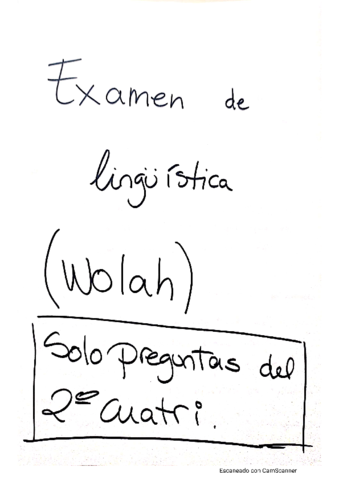 Examen de
lingüística
(Wolah)
Solo preguntas del
2º cuatri.
Escaneado con CamScanner